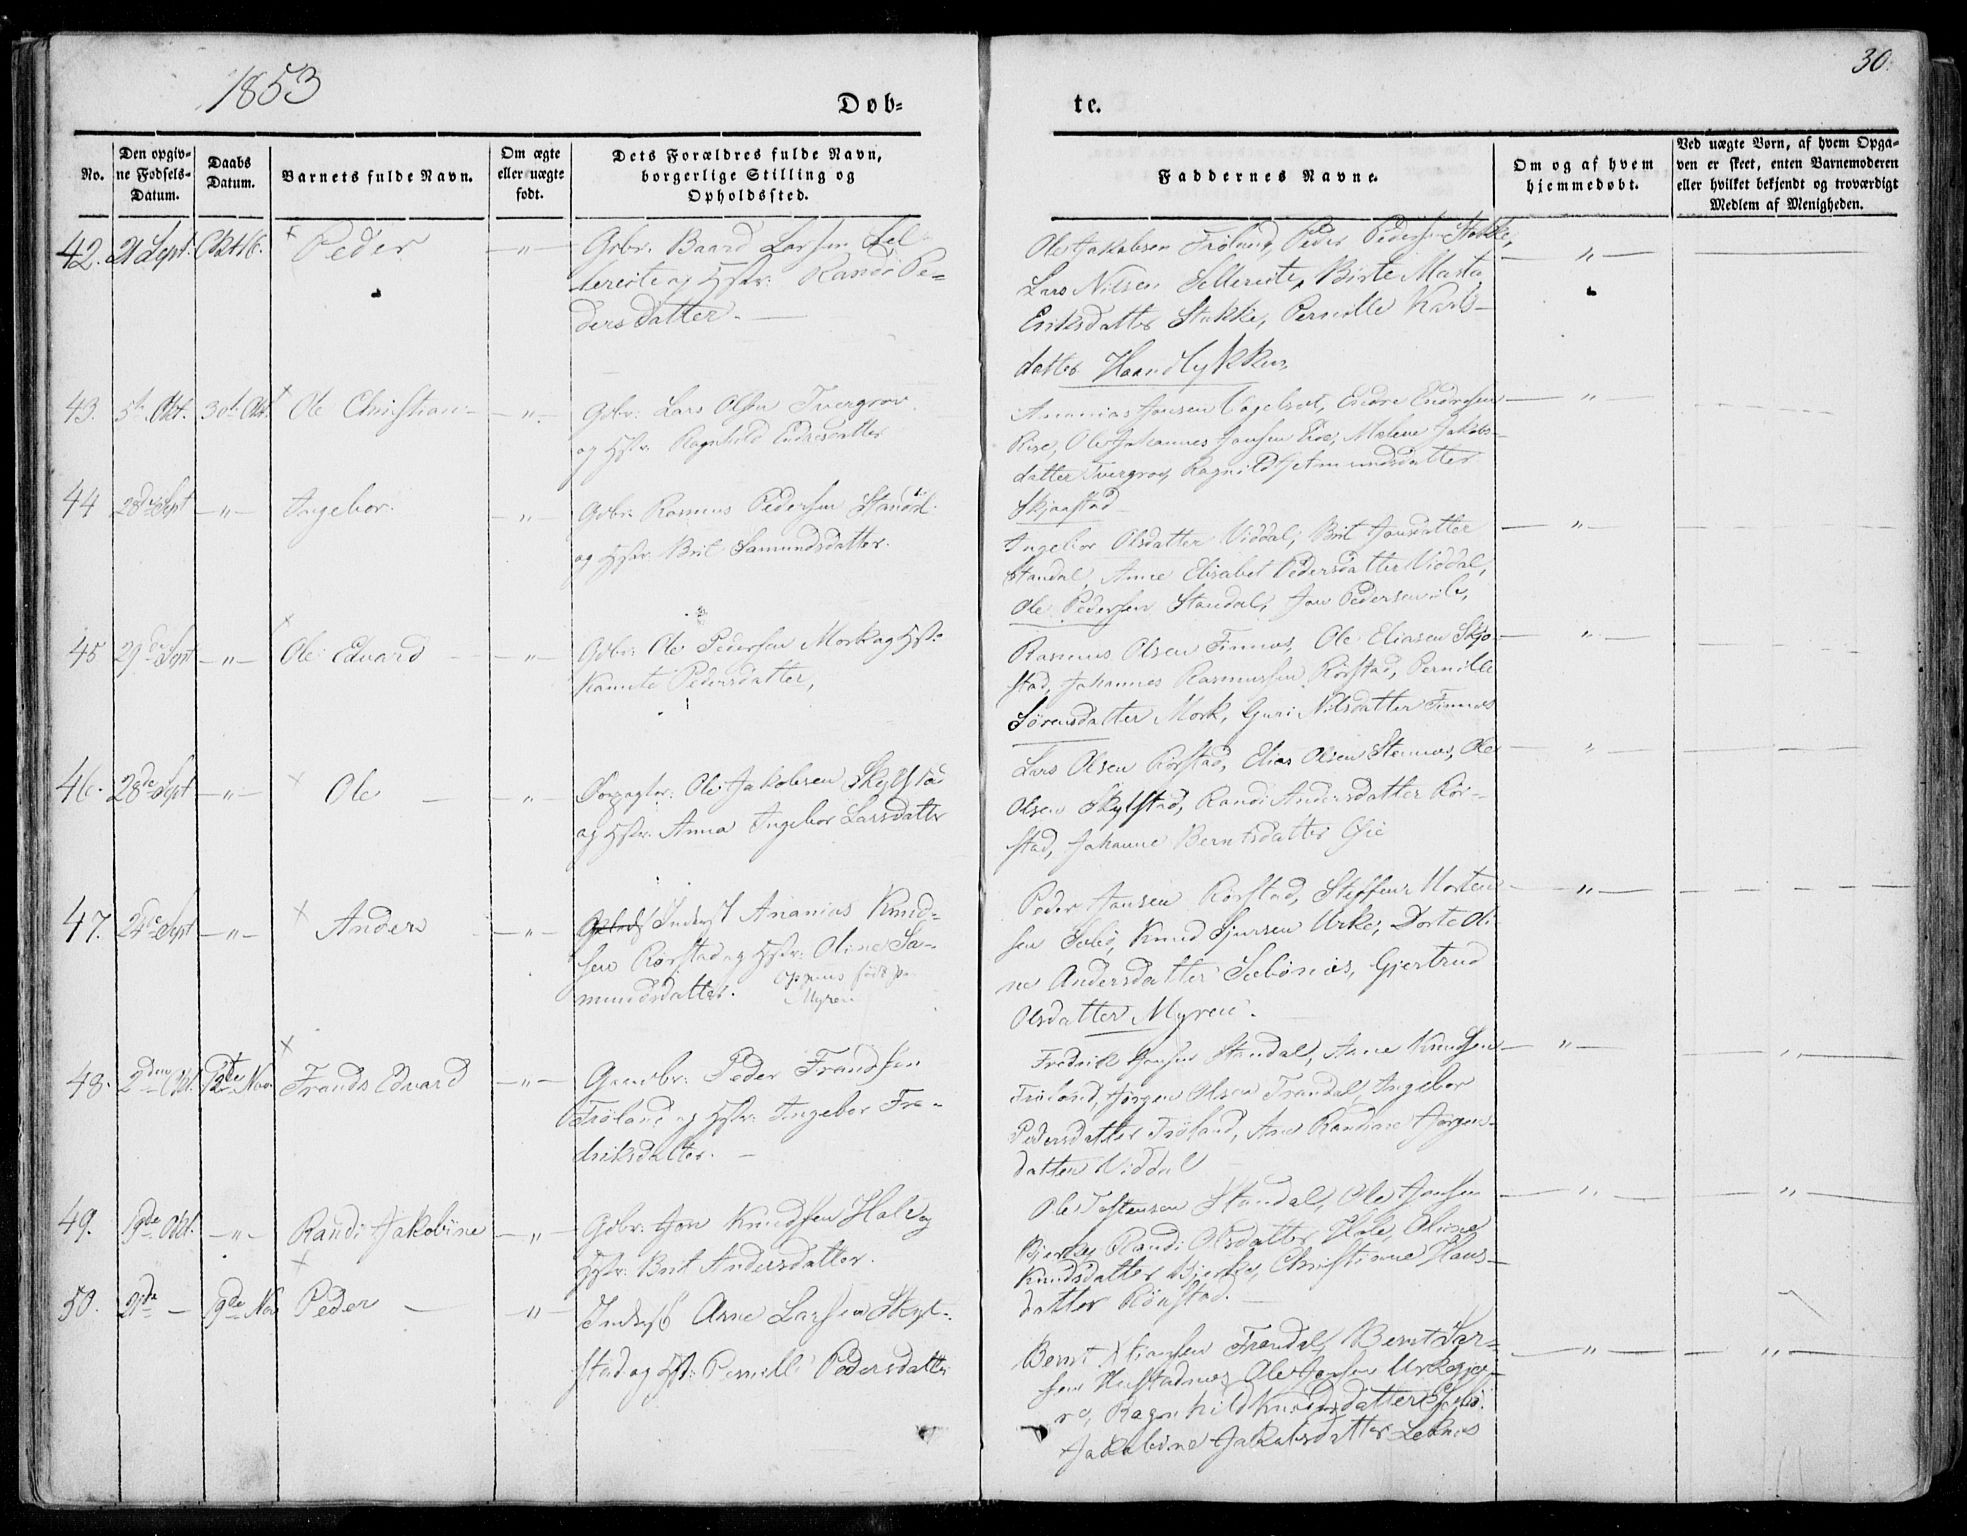 1853
30.
Døb=
te.
No.
Den opgiv=
ne Fødsels=
Datum.
Daabs
Datum.
Barnets fulde Navn.
Om ægte
eller uægte
født.
Dets Forældres fulde Navn,
borgerlige Stilling og
Opholdssted.
Faddernes Navne.
Om og af hvem
hjemmedøbt.
Ved uægte Børn, af hvem Opga=
ven er skeet, enten Barnemoderen
eller hvilket bekjendt og troværdigt
Medlem af Menigheden.
42. 21 Sept. Peder — " — Gdbr: Baard Larsen Sel
lereite og Hstr: Randi Pe=
dersdatter. —
Ole Jakobsen Frøland, Peder Pedersen Stokke,
Lars Nilsen Sellereite, Birte Marta
Eriksdatter Stokke, Pernille Karls=
datter
43. 5te Okt. 30te Okt. Ole Christian — " — Gdbr: Lars Olsen Tvergrov
og Hstr: Ragnhild Endresdatter
Ananias Jonsen Vogelset, Endre Endresen
Rise, Ole Johannes Jonsen Malene Jakobs=
datter Tvergrov, Ragnild Amundsdatter
Skjaastad
44 28de Sept — " — Ingebor. — " — Gdbr: Rasmus Pedersen Standal
og Hstr: Brit Samundsdatter.
Ingebor Olsdatter Viddal, Brit Jonsdatter
Standal, Anne Elisabet Pedersdatter Viddal,
Ole Pedersen Standal, Jon Pedersen ib,
45 29de Sept — " — Ole Edvard — " — Gdbr: Ole Pedersen Mork og Hstr:
Kanute Pedersdatter,
Rasmus Olsen Finnes, Ole Eliasen Skjo=
stad, Johannes Rasmussen Rørstad, Pernille
Sørensdatter Mork, Guri Nilsdatter Finnes
46. 28de Sept — " — Ole — " — Ole Jakobsen Skylstad
og Hstr: Anna Ingebor Larsdatter
Lars Olsen Rørstad, Elias Olsen Stennes, Ole
Olsen Skylstad, Randi Andersdatter Rør=
stad, Johanne Berntsdatter Øie
47. 24de Sept — " — Anders — " — Inderst Ananias Knud=
sen Rørstad og Hstr: Oline Sa=
mundsdatter.
Myren
Peder Jansen Rørstad, Steffen Morten
sen Sebø, Knud Sjursen Urke, Dorte Oli=
ne Andersdatter Sæbønes, Gjertrud
Olsdatter Myren.
48. 2den Okt. 12te Nov. Frands Edvard — " — Gaardbr: Peder Frandsen
Frøland og Hstr: Ingebor Fre=
driksdatter. —
Fredrik Jonsen Standal, Arne Knudsen
Frøland, Jørgen Olsen Trandal, Ingebor
Pedersdatter Frøland, Ane Randine Jørgens=
datter Viddal
49. 19de Okt. — " — Randi Jakobine — " — Gdbr: Jon Knudsen Hole og
Hstr: Brit Andersdatter.
Ole Tostensen Standal, Ole Jonsen
Bjerke, Randi Olsdatter Hole, Oline
Knudsdatter Bjerke, Christianne Hans=
datter Rørstad. —
50. 21de — 19de Nov Peder — " Inderst Arne Larsen Skyl=
stad og Hst: Pernille Pedersdatter
Bernt Trandal, Bernt Lar=
sen Hustadnes, Ole Jonsen Urkegjer=
re, Ragnhild Knudsdatter Sebø.
Jakobine Jakobsdatter Leknes